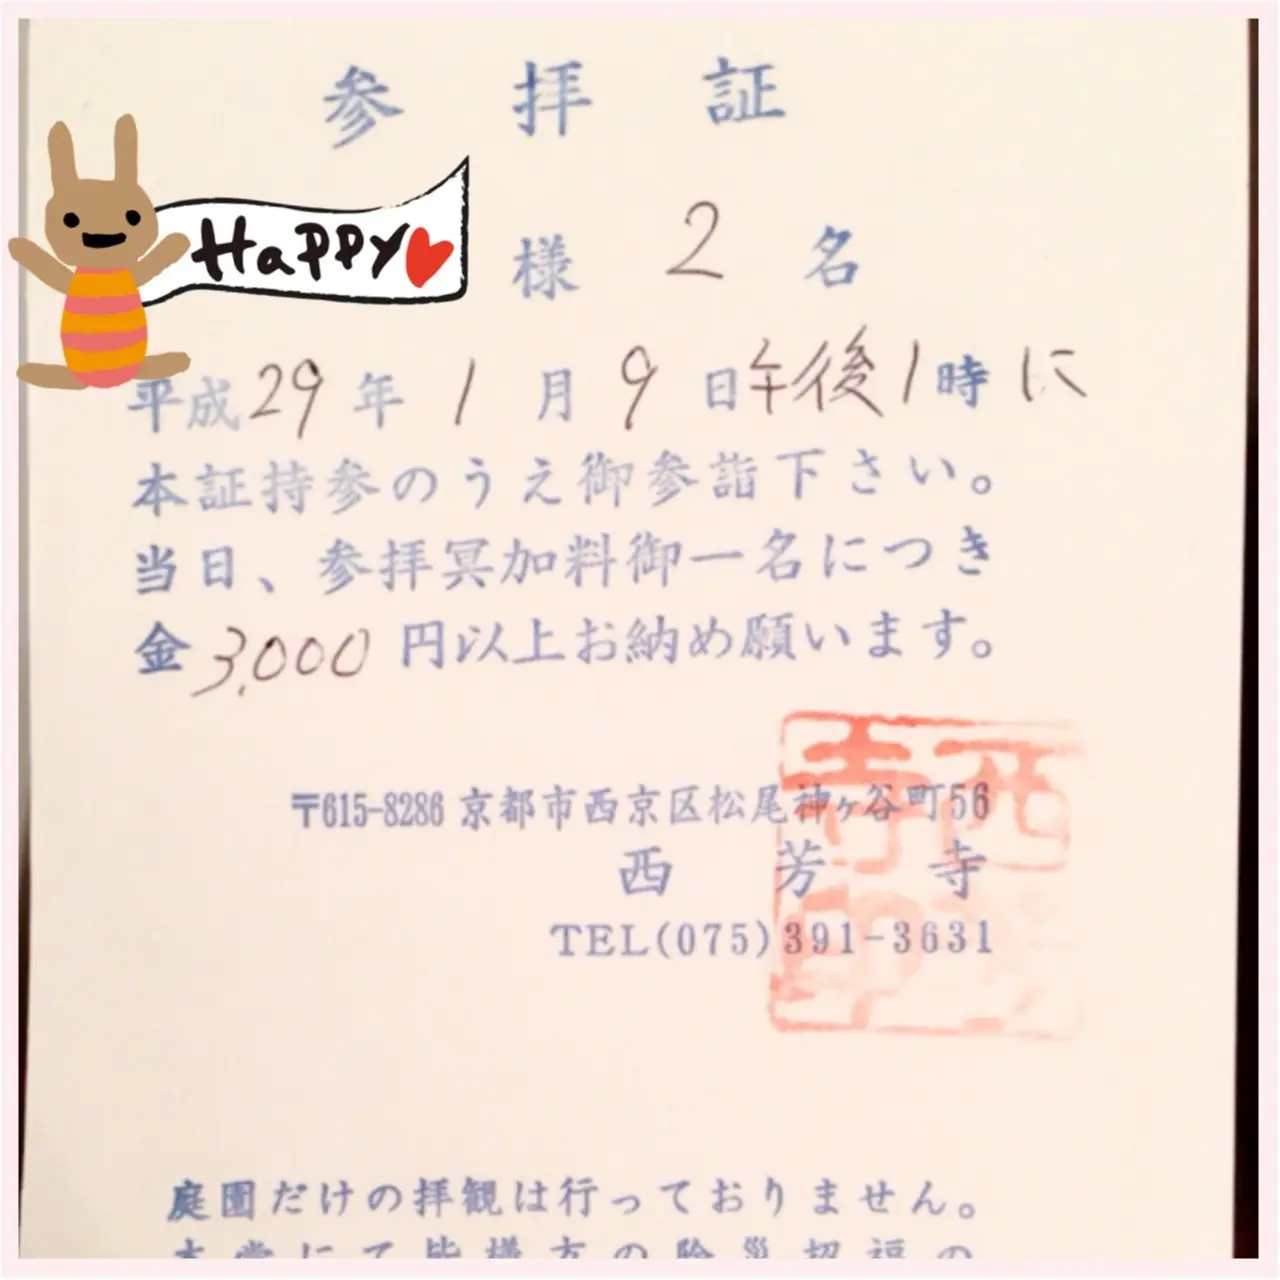 参拝証
Happy
様 2 名
平成29年1月9日午後1時に
本証持参のうえ御参詣下さい。
当日、参拝冥加料御一名につき
金3,000円以上お納め願います。
〒615-8286 京都市西京区松尾神ヶ谷町56
西芳寺
TEL(075)391-3631
庭園だけの拝観は行っておりません。
本堂にて皆様方の除災招福の